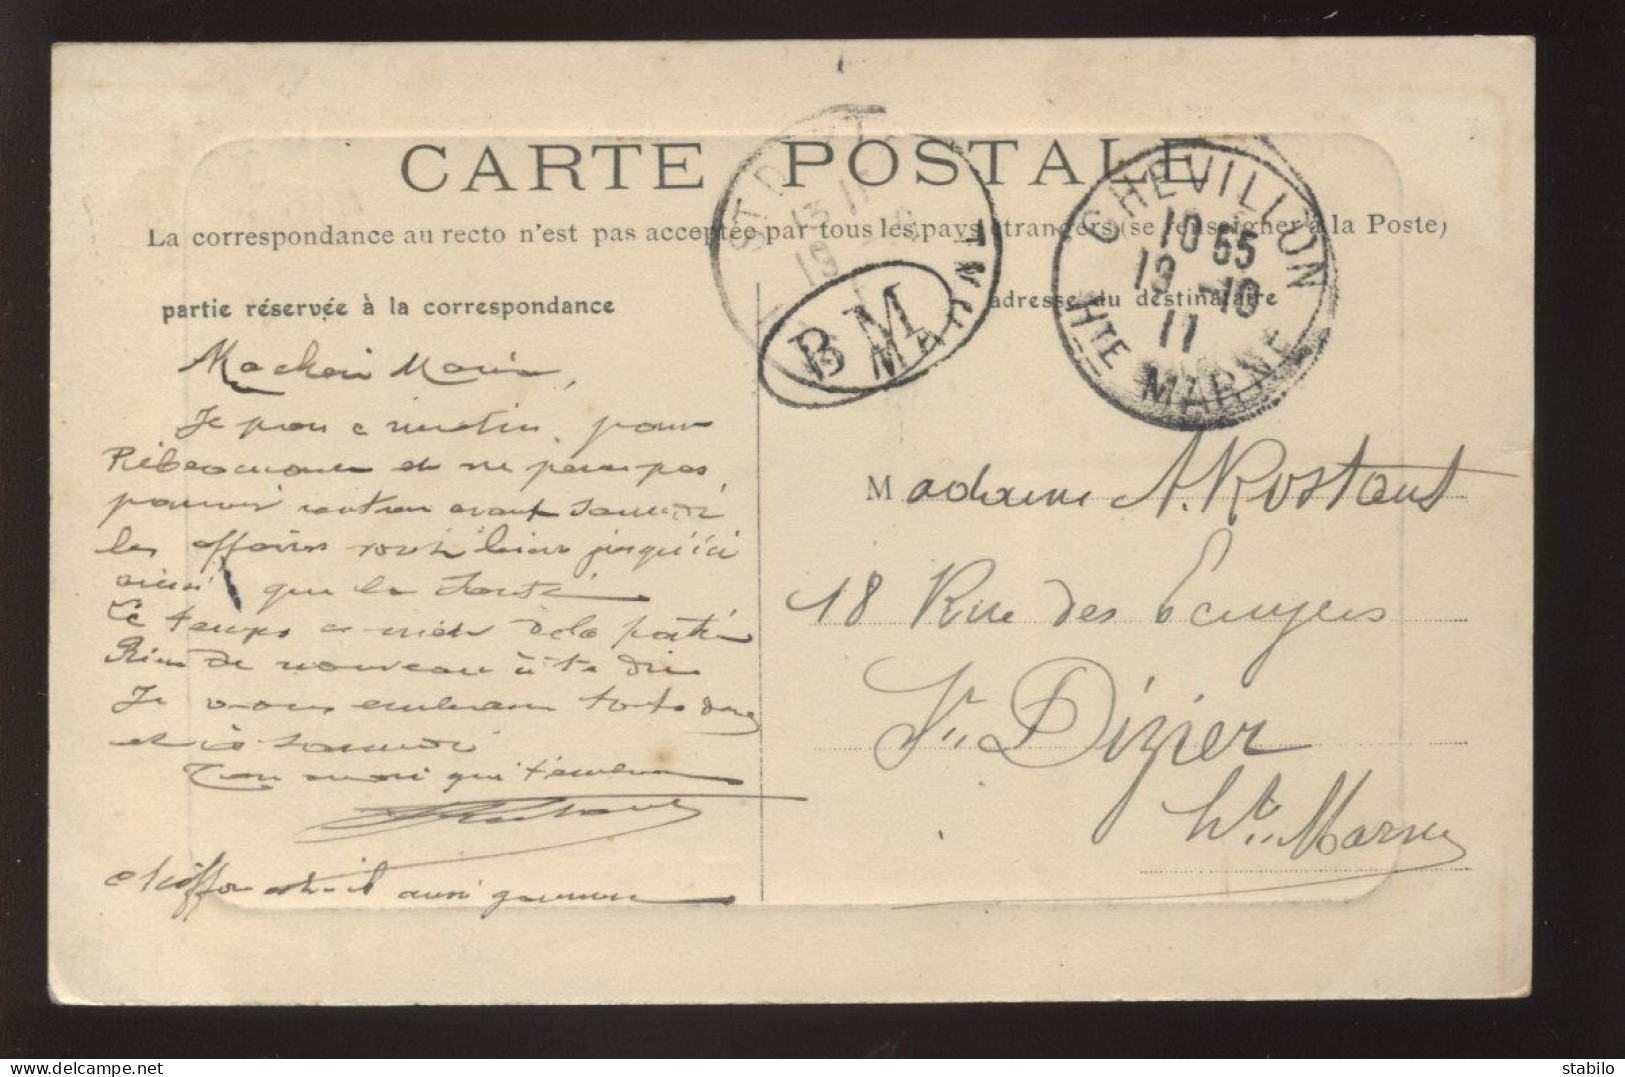 CARTE POSTALE
La correspondance au recto n'est pas acceptée par tous les pays étrangers (se renseigner à la Poste)
partie réservée à la correspondance
adresse du destinataire
ST DIZIER
13 11
19
HTE MARNE
BM
CHEVILLON
10 55
19 -10
11
HTE MARNE
Ma cher Marie,
Je pars ce matin pour
et ne pense pas
pouvoir rentrer avant samedi
les affaires vont bien jusqu'ici
ainsi que la santé
Le temps de la partie
Rien de nouveau à te dire
Je vous embrasse toutes deux
et à samedi
Ton mari qui t'embrasse
est-il aussi
Madame A. Rostant
18 Rue des Ecuyers
St. Dizier
Hte. Marne
delcampe.net
stabilo